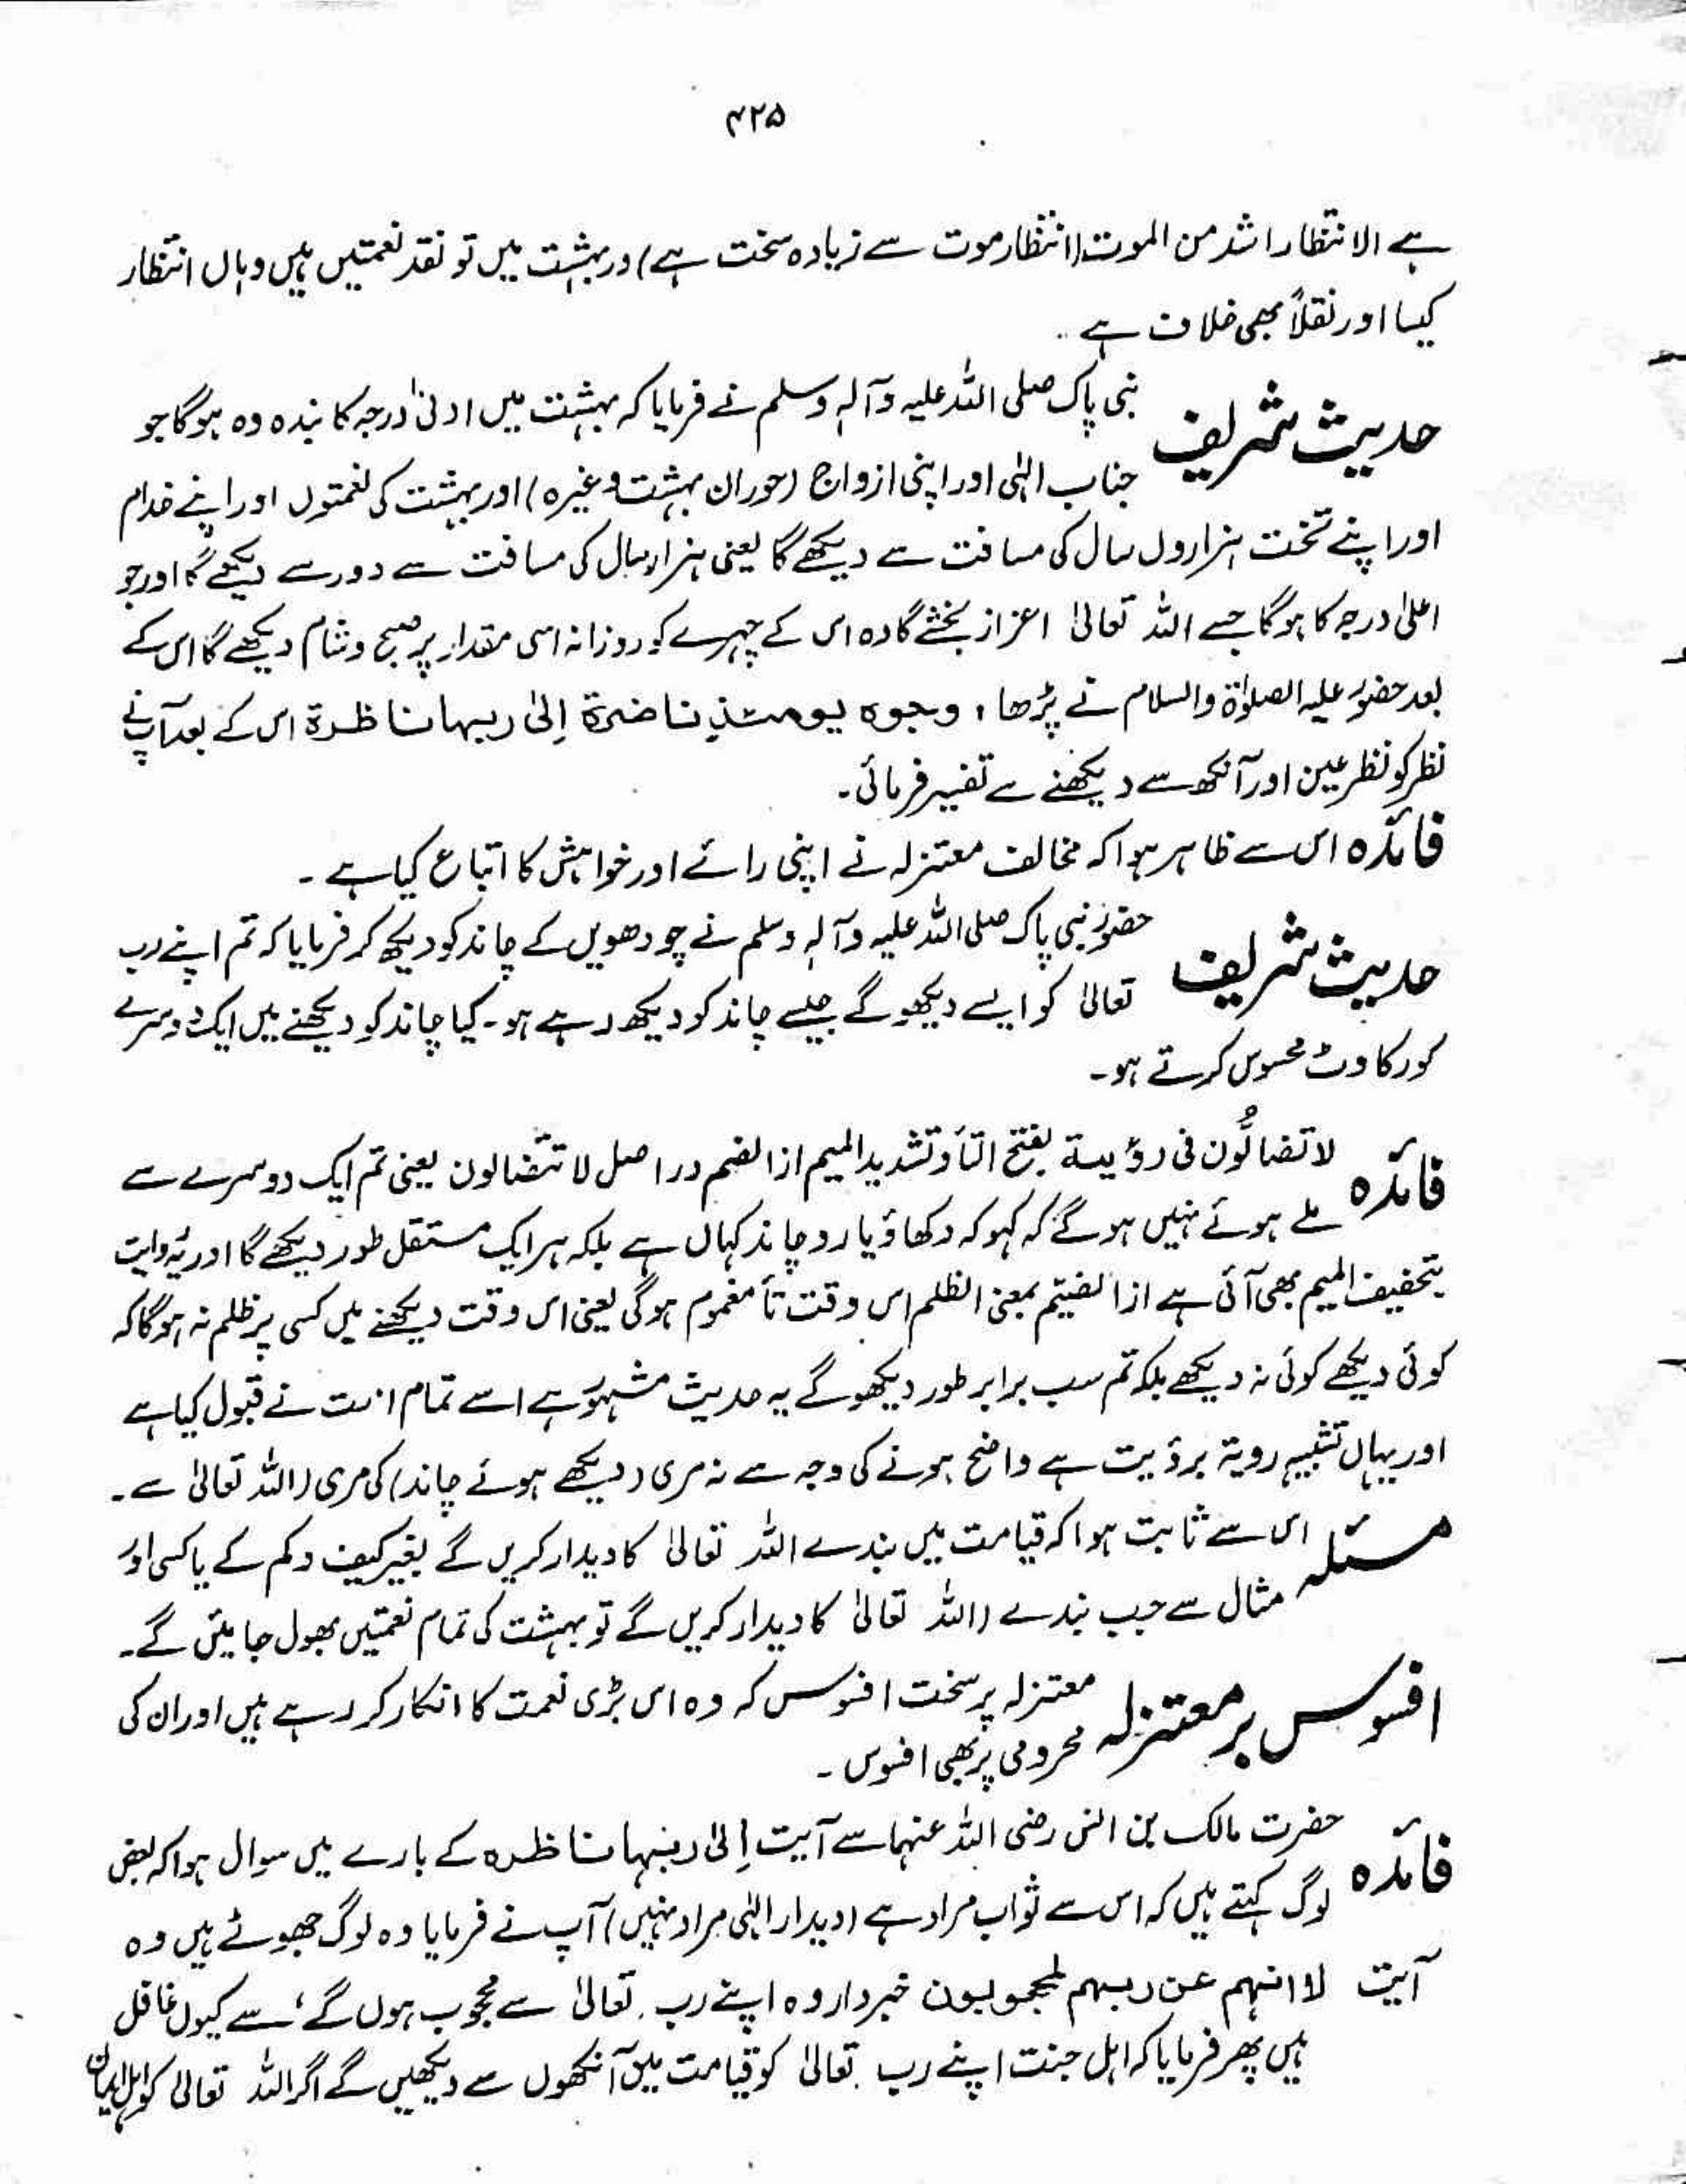 ۴۲۵
ہے الانتظار اشد من الموت (انتظار موت سے زیادہ سخت ہے) دربہشت میں تو نقد نعمتیں ہیں وہاں انتظار
کیسا اور نقلاً بھی خلاف ہے۔
حدیث شریف نبی پاک صلی اللہ علیہ وآلہ وسلم نے فرمایا کہ بہشت میں ادنیٰ درجہ کا بندہ وہ ہوگا جو
جناب الٰہی اور اپنی ازواج (حوران بہشت وغیرہ) اور بہشت کی نعمتوں اور اپنے خدام
اور اپنے تخت ہزاروں سال کی مسافت سے دیکھے گا یعنی ہزار سال کی مسافت سے دور سے دیکھے گا اور جو
اعلیٰ درجہ کا ہوگا جسے اللہ تعالیٰ اعزاز بخشے گا وہ اس کے چہرے کو روزانہ اسی مقدار پر صبح وشام دیکھے گا اس کے
بعد حضور علیہ الصلوٰۃ والسلام نے پڑھا، وجوہ یومئذٍ ناضرۃ اِلیٰ ربہا ناظرۃ اس کے بعد آپ نے
نظر کو نظر عین اور آنکھ سے دیکھنے سے تفسیر فرمائی۔
فائدہ اس سے ظاہر ہوا کہ مخالف معتزلہ نے اپنی رائے اور خواہش کا اتباع کیا ہے۔
حدیث شریف حضور نبی پاک صلی اللہ علیہ وآلہ وسلم نے چودھویں کے چاند کو دیکھ کر فرمایا کہ تم اپنے رب
تعالیٰ کو ایسے دیکھو گے جیسے چاند کو دیکھ رہے ہو۔ کیا چاند کو دیکھنے میں ایک دوسرے
کو رکاوٹ محسوس کرتے ہو۔
فائدہ لا تضالُّون فی رؤیۃ بفتح التأ وتشدید المیم از الضم در اصل لا تتضالون یعنی تم ایک دوسرے سے
ملے ہوئے نہیں ہو گے کہ کہو کہ دکھاؤ یارو چاند کہاں ہے بلکہ ہر ایک مستقل طور دیکھے گا اور یہ روایت
بتخفیف المیم بھی آئی ہے از الضیتم بمعنی الظلم اس وقت تأ مغموم ہوگی یعنی اس وقت دیکھنے میں کسی پر ظلم نہ ہوگا کہ
کوئی دیکھے کوئی نہ دیکھے بلکہ تم سب برابر طور دیکھو گے یہ حدیث مشہور ہے اسے تمام امت نے قبول کیا ہے
اور یہاں تشبیہ رویۃ برؤیت ہے واضح ہونے کی وجہ سے نہ مری (دیکھے ہوئے چاند) کی مری (اللہ تعالیٰ سے۔
مسئلہ اس سے ثابت ہوا کہ قیامت میں بندے اللہ تعالیٰ کا دیدار کریں گے بغیر کیف وکم کے یا کسی اور
مثال سے جب بندے (اللہ تعالیٰ کا دیدار کریں گے تو بہشت کی تمام نعمتیں بھول جائیں گے۔
افسوس بر معتزلہ معتزلہ پر سخت افسوس کہ وہ اس بڑی نعمت کا انکار کر رہے ہیں اور ان کی
محرومی پر بھی افسوس۔
فائدہ حضرت مالک بن انس رضی اللہ عنہما سے آیت اِلیٰ ربہا ناظرہ کے بارے میں سوال ہوا کہ بعض
لوگ کہتے ہیں کہ اس سے ثواب مراد ہے (دیدار الٰہی مراد نہیں) آپ نے فرمایا وہ لوگ جھوٹے ہیں وہ
آیت لا انہم عن ربہم لمحجوبون خبردار وہ اپنے رب تعالیٰ سے محجوب ہوں گے، سے کیوں غافل
ہیں پھر فرمایا کہ اہل جنت اپنے رب تعالیٰ کو قیامت میں آنکھوں سے دیکھیں گے اگر اللہ تعالیٰ کو اہل ایمان